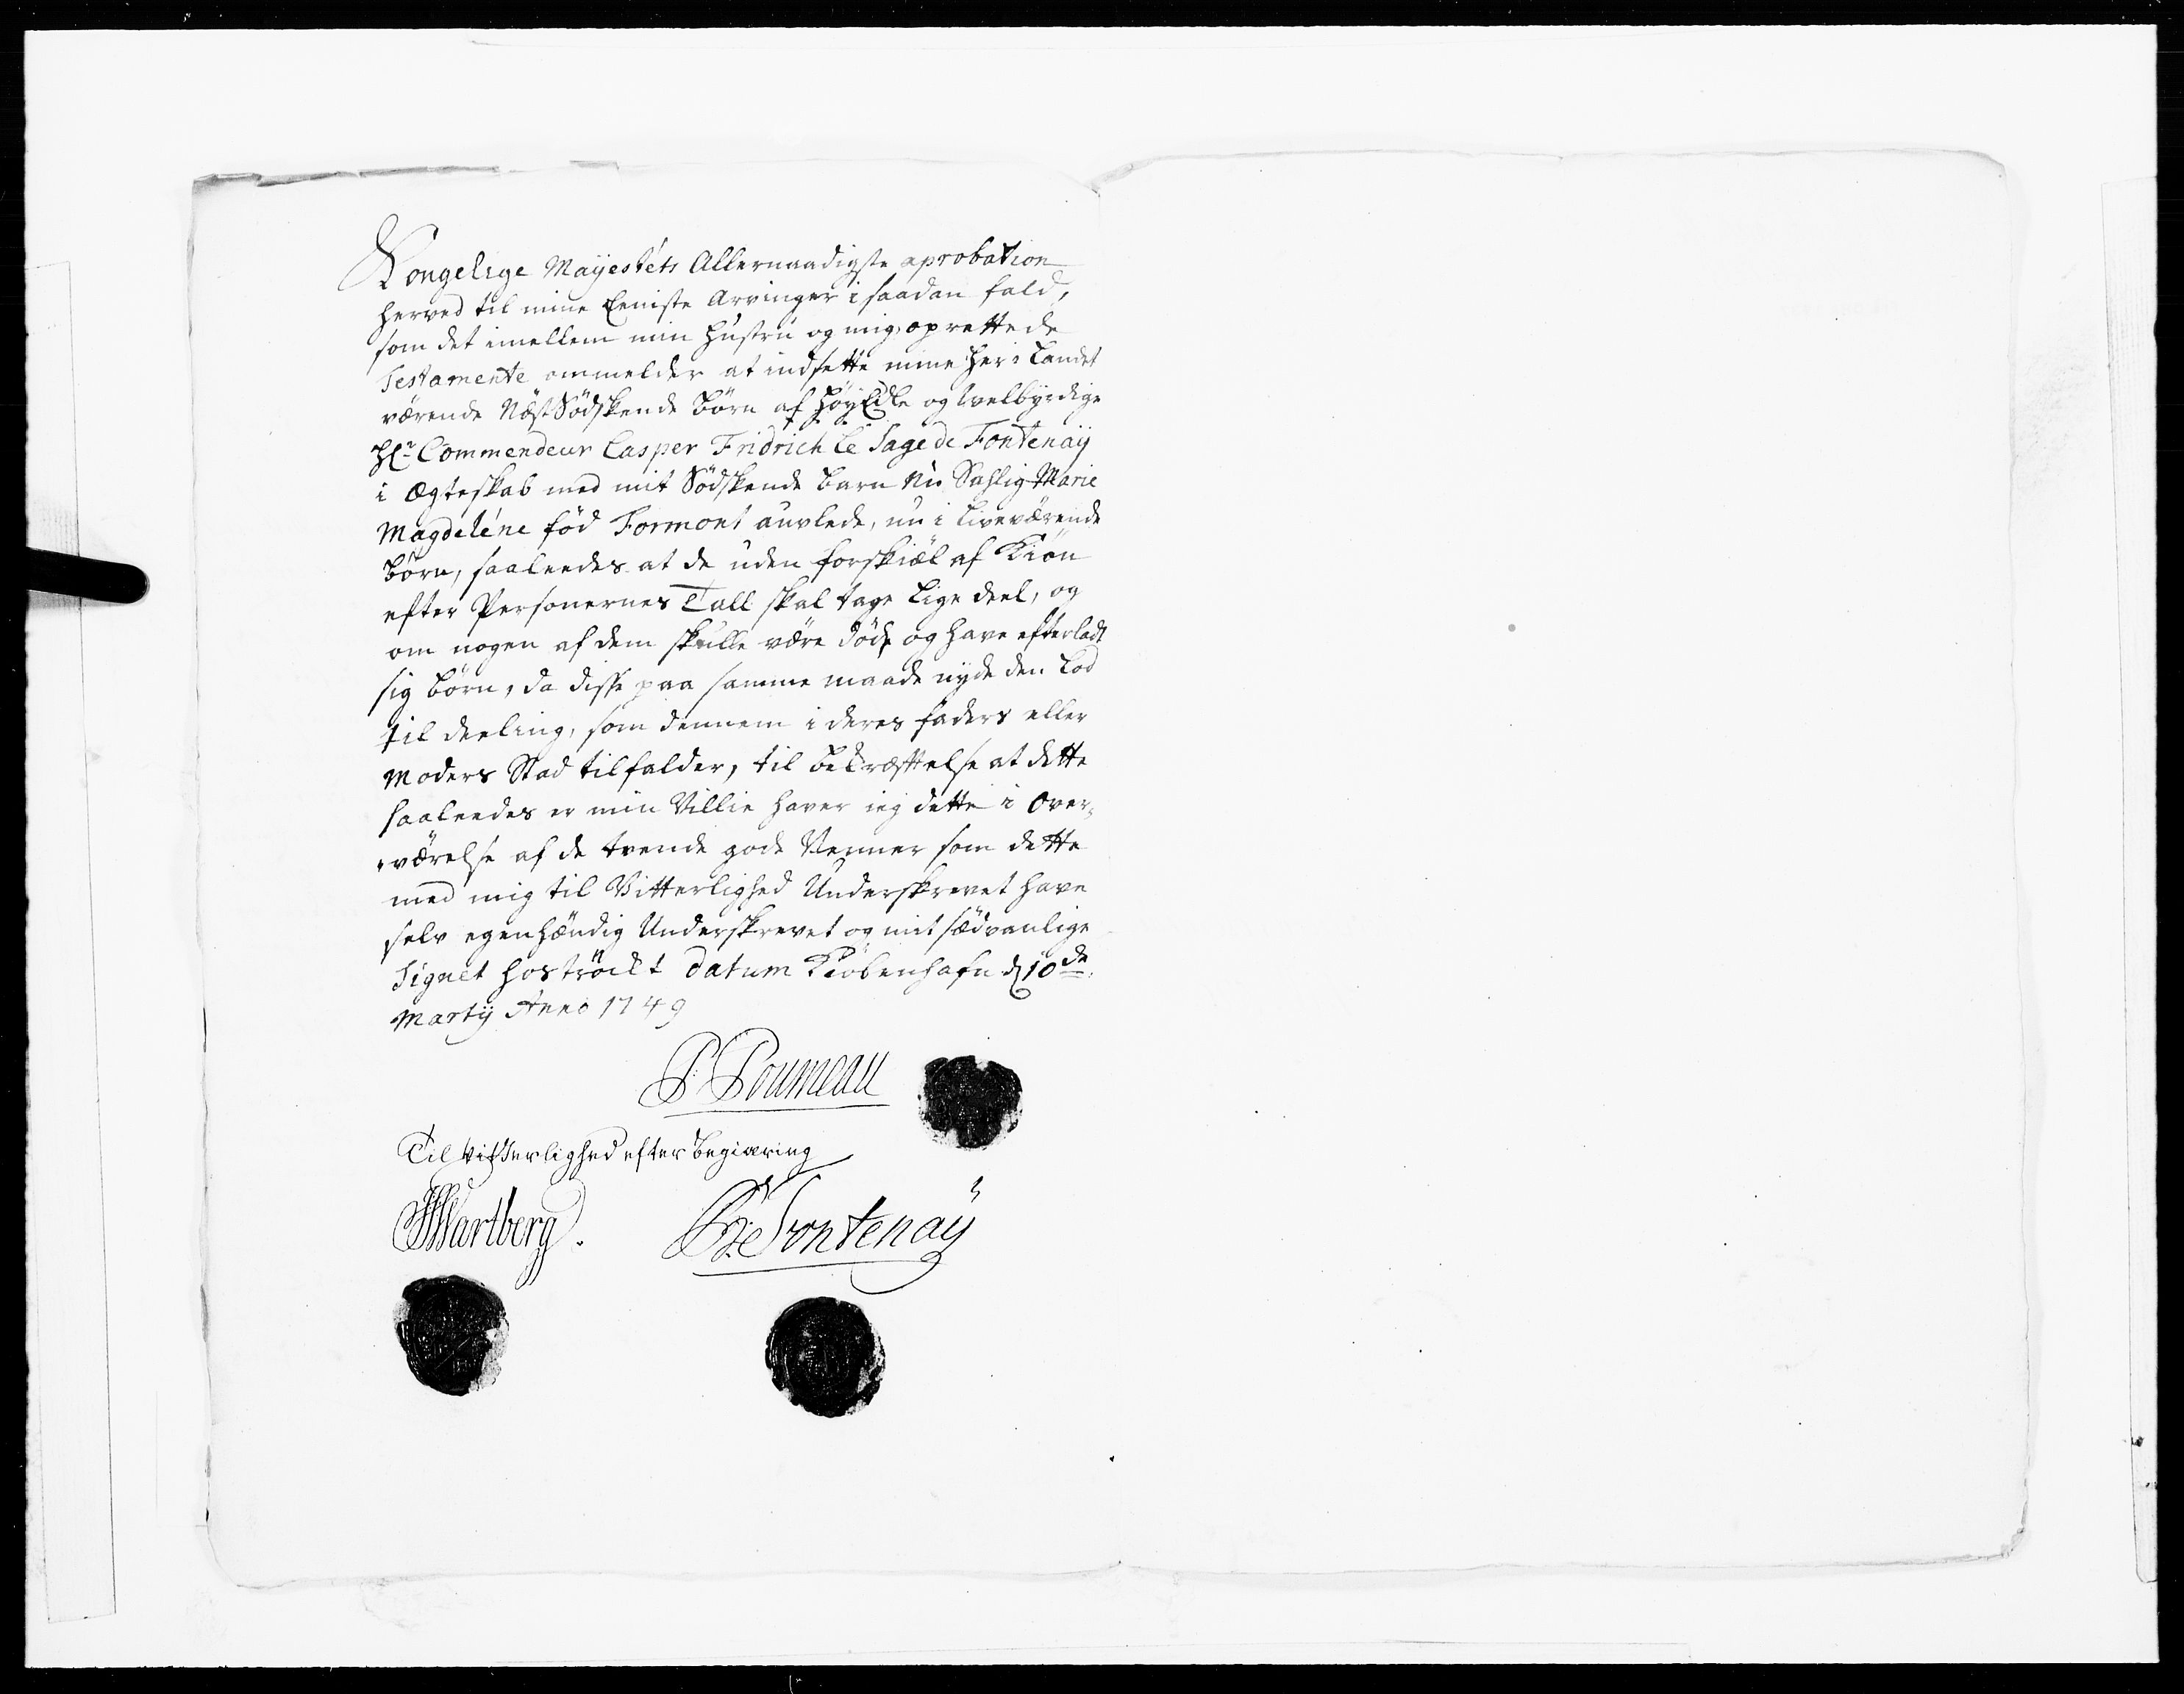 Kongelige Mayestéts Allernaadigste aprobation
herved til mine Eeniste Arvinger i saadan fald,
som det imellem min Hustru og mig, oprettede
Testamente ommelder at indsette mine her i Landet
værende Næst Södskende Börn af HöyEdle og Welbyrdige
Hr Commendeur Casper Fridrich Le Sage de Fontenaÿ
i Ægteskab med mit Södskende Barn Nu Sahlig Marie
Magdeléne föd Formont auvlede, nu i Liveværende
Börn, saaleedes at de uden forskiæl af Kiön
efter Personernes Tall skal tage Lige deel, og
om nogen af dem skulle være döde og have efterladt
sig Börn, da disse paa samme maade nyde den Lod
til deeling, som dennem i deres faders eller
Moders Stad tilfalder, til bekræfftelse at dette
saaleedes er min Villie haver ieg dette i Over-
værelse af de tvende gode Venner som dette
med mig til Vitterlighed Underskrevet have
selv egenhændig Underskrevet og mit sædvanlige
Signet hoströckt datum Kiöbenhafn d 10de
Martÿ Anno 1749
P: Poumeau
Til Vitterlighed efter Begiæring
JWartberg.
De Fontenaÿ